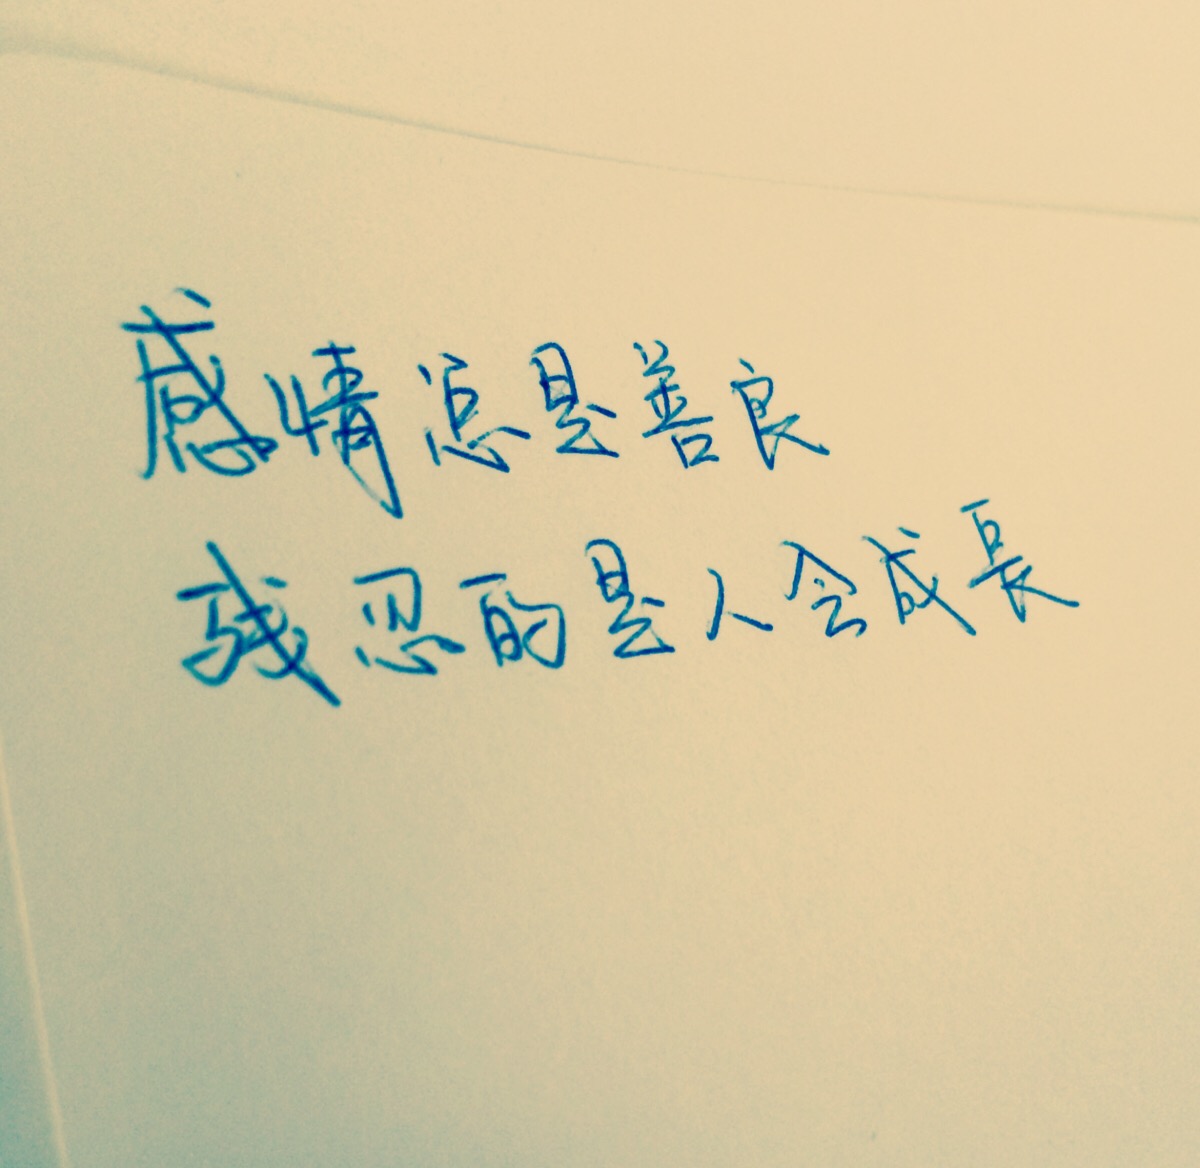 感情总是善良
残忍的是人会成長